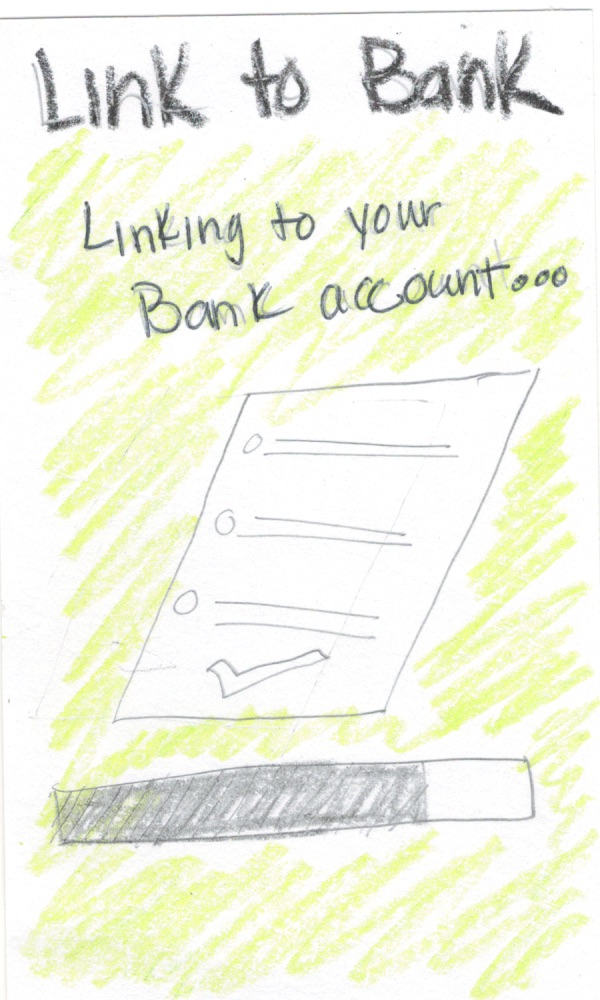 Link to Bank
Linking to your
Bank account...